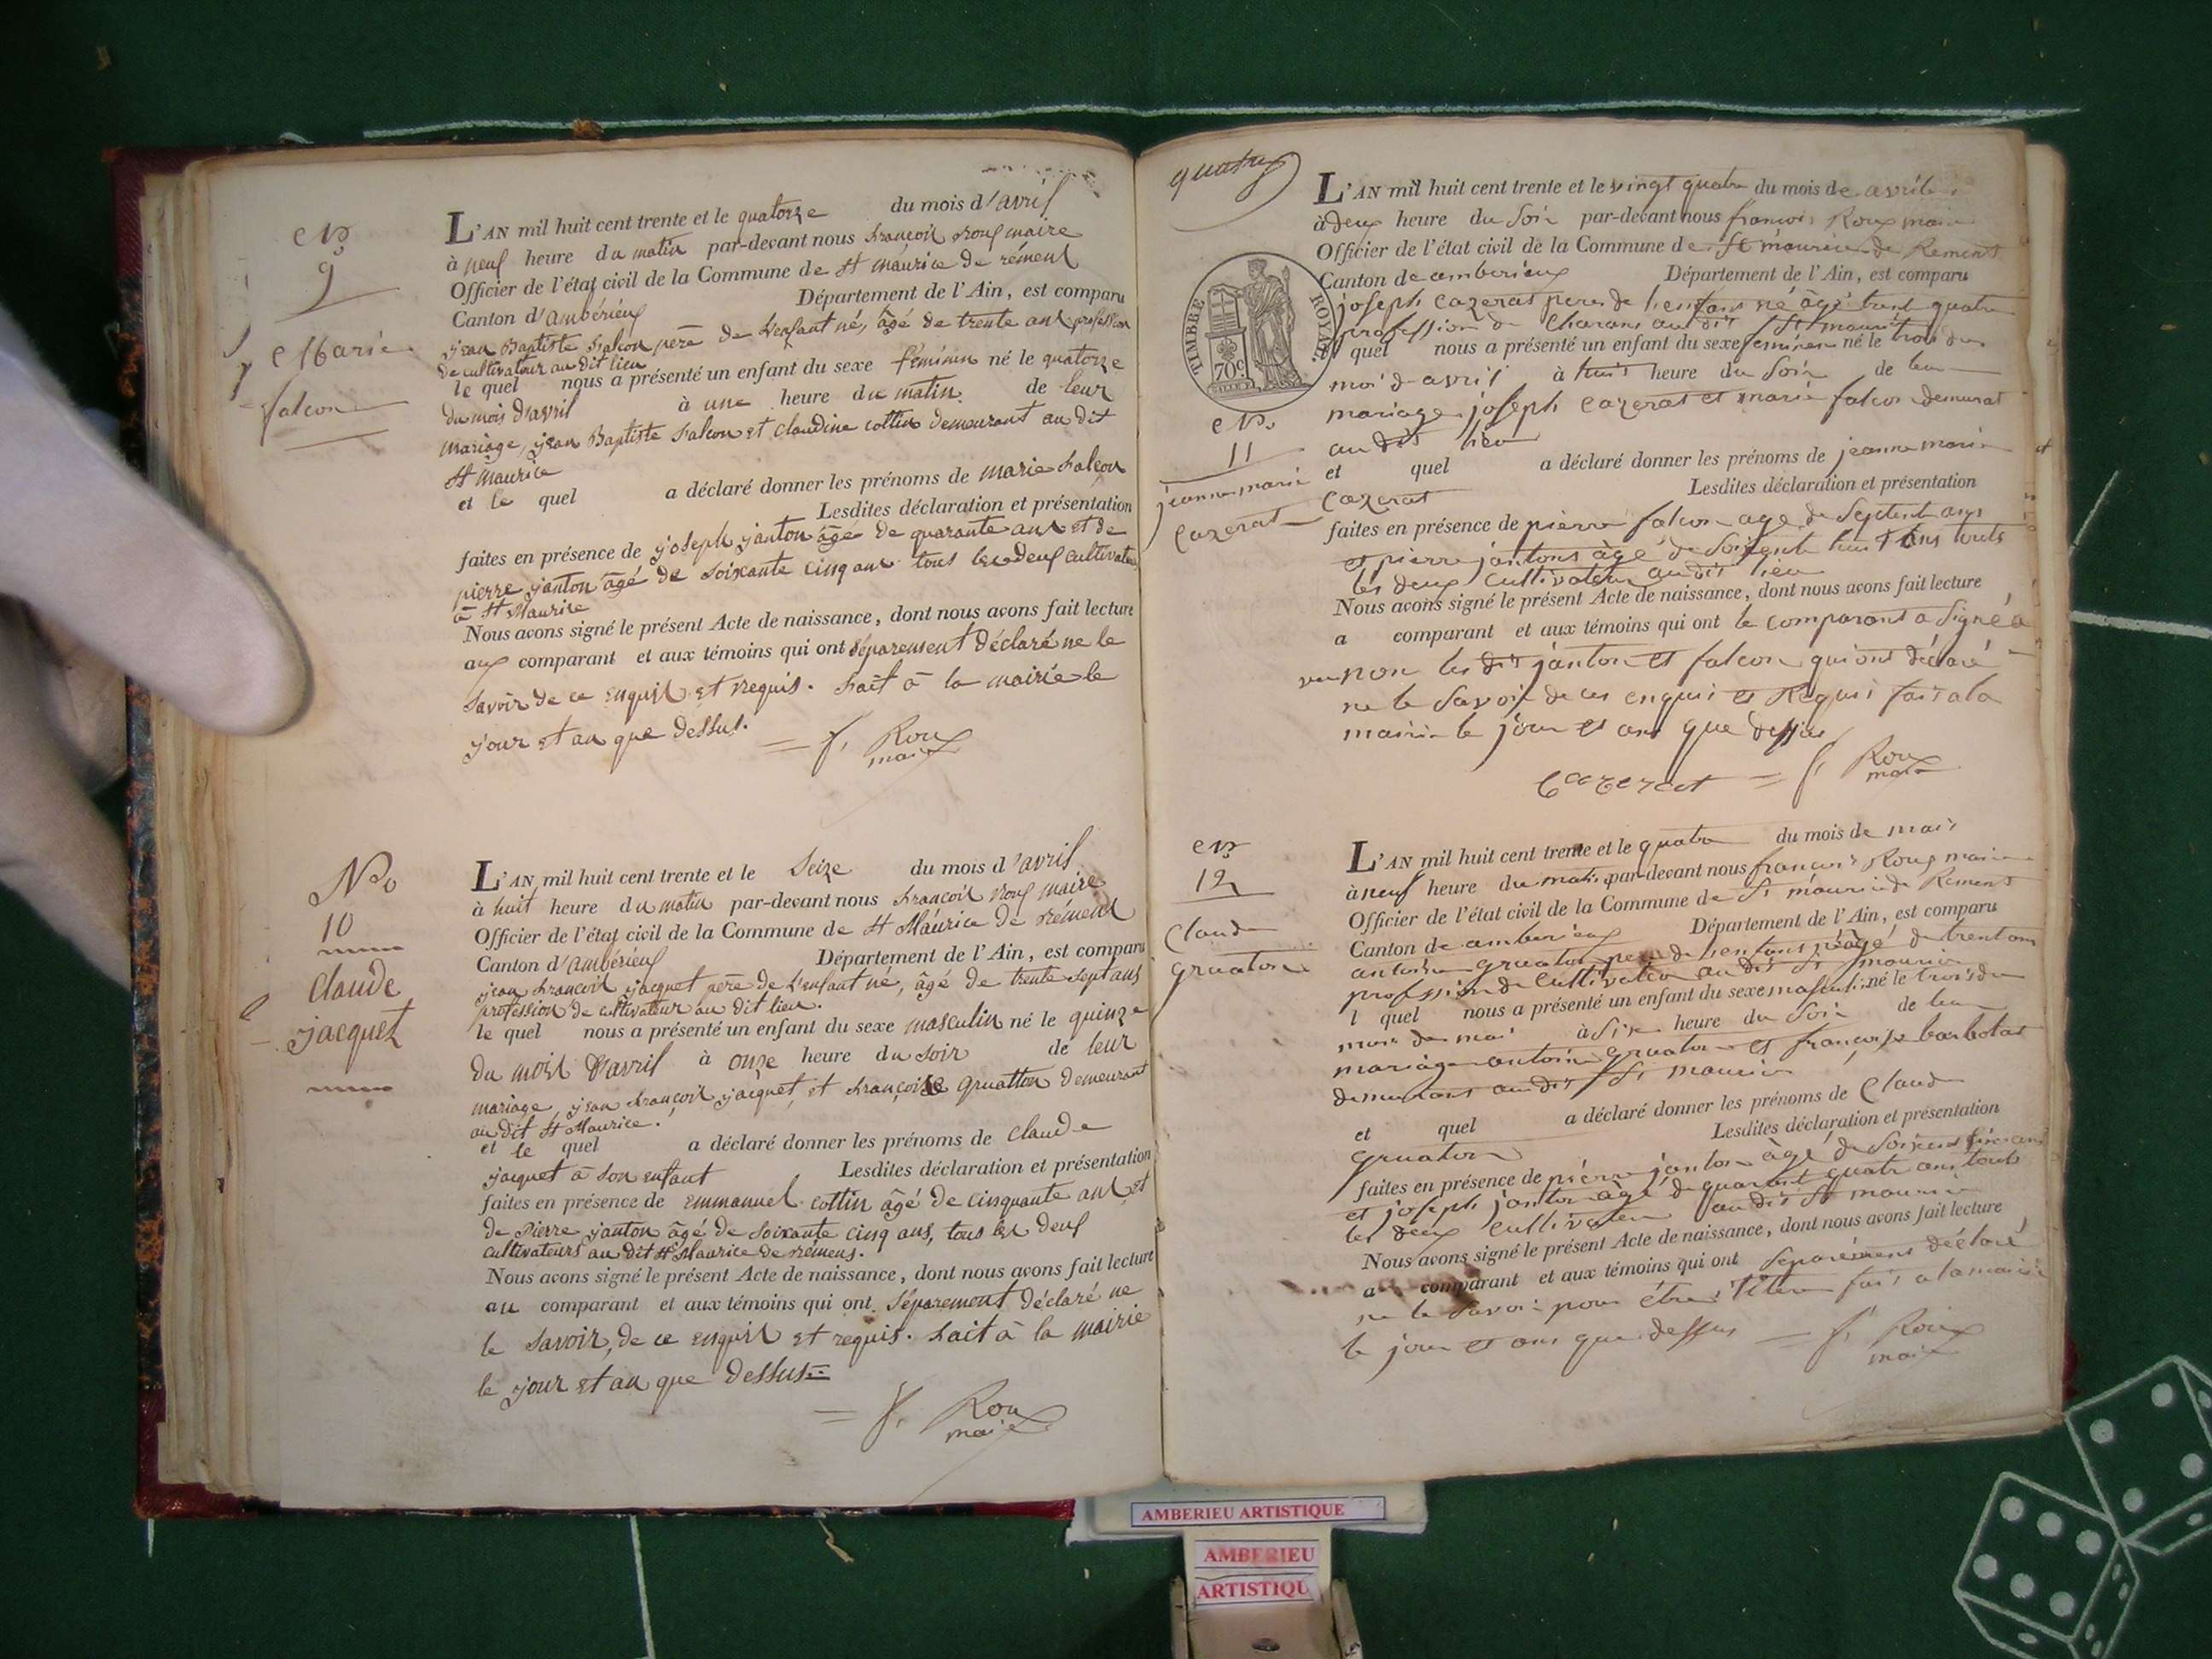 No
9
Marie
falcon
L'AN mil huit cent trente et le quatorze du mois d'avril
à neuf heure du matin par-devant nous françois roux maire
Officier de l'état civil de la Commune de st maurice de rémens
Canton d'ambérieux Département de l'Ain, est comparu
jean Baptiste falcon père de l'enfant né, âgé de trente ans profession
de cultivateur au dit lieu
le quel nous a présenté un enfant du sexe féminin né le quatorze
du mois d'avril à une heure du matin de leur
mariage, jean Baptiste falcon et claudine cottin demeurant au dit
st maurice
et le quel a déclaré donner les prénoms de marie falcon
Lesdites déclaration et présentation
faites en présence de joseph janton âgé de quarante ans et de
pierre janton âgé de soixante cinq ans tous les deux cultivateurs
à st Maurice
Nous avons signé le présent Acte de naissance, dont nous avons fait lecture
aux comparant et aux témoins qui ont séparement déclaré ne le
savoir de ce enquis et requis. fait à la mairie le
jour et an que dessus.
f. Roux
maire
No
10
Claude
jacquet
L'AN mil huit cent trente et le Seize du mois d'avril
à huit heure du matin par-devant nous françois roux maire
Officier de l'état civil de la Commune de st Maurice de rémens
Canton d'ambérieux Département de l'Ain, est comparu
jean françois jacquet père de l'enfant né, âgé de trente sept ans
profession de cultivateur au dit lieu.
le quel nous a présenté un enfant du sexe masculin né le quinze
du mois d'avril à onze heure du soir de leur
mariage, jean françois jacquet, et françoise gruatton demeurant
au dit st Maurice.
et le quel a déclaré donner les prénoms de claude
jacquet à son enfant Lesdites déclaration et présentation
faites en présence de emmanuel cottin âgé de cinquante ans et
de Pierre janton âgé de soixante cinq ans, tous les deux
cultivateurs au dit st Maurice de rémens.
Nous avons signé le présent Acte de naissance, dont nous avons fait lecture
au comparant et aux témoins qui ont séparement déclaré ne
le savoir, de ce enquis et requis. fait à la mairie
le jour et an que dessus
f. Roux
maire
quatre
TIMBRE ROYAL
70c
No
11
jeanne marie
cazerat
L'AN mil huit cent trente et le vingt quatre du mois de avril
à deux heure du soir par-devant nous françois Roux maire
Officier de l'état civil de la Commune de st maurice de Remens
Canton de amberieux Département de l'Ain, est comparu
joseph cazerat pere de lenfant né âgé trent quatre
profession de charon au dit st maurice
quel nous a présenté un enfant du sexe feminin né le trois du
moi d avril à huit heure du soir de leur
mariage joseph cazerat et marie falcon demurat
au dit lieu
et quel a déclaré donner les prénoms de jeanne marie
cazerat Lesdites déclaration et présentation
faites en présence de pierre falcon age de septent ans
et pierre jantons âgé de soixente huit ans touts
les deux cultivateur au dit lieu
Nous avons signé le présent Acte de naissance, dont nous avons fait lecture
a comparant et aux témoins qui ont le comparant a signé a
non les dit janton et falcon qui ont déclaré
ne le savoir de ces enquis et Requis fait a la
mairie le jour et ans que dessus
Cazerat f. Roux
maire
No
12
Claude
gruaton
L'AN mil huit cent trente et le quatre du mois de mais
à neuf heure du matin par-devant nous françois Roux maire
Officier de l'état civil de la Commune de st maurice de Remens
Canton de amberieux Département de l'Ain, est comparu
antoine gruaton pere de lenfans né âgé de trent ans
profession de cultivateur au dit st maurice
l quel nous a présenté un enfant du sexe masculin né le trois du
mois de mai à six heure du soir de leur
mariage antoine gruaton et françoise barbolat
demurans au dit st maurice
et quel a déclaré donner les prénoms de Claude
gruaton Lesdites déclaration et présentation
faites en présence de pierre janton âgé de soixent six ans
et joseph janton âgé de quarent quatr ans touts
les deux cultivateur au dit st maurice
Nous avons signé le présent Acte de naissance, dont nous avons fait lecture
a comparant et aux témoins qui ont séparément déclaré
ne le savoir pour être fait a la mairie
le jour et ans que dessus f. Roux
maire
AMBERIEU ARTISTIQUE
AMBERIEU
ARTISTIQU